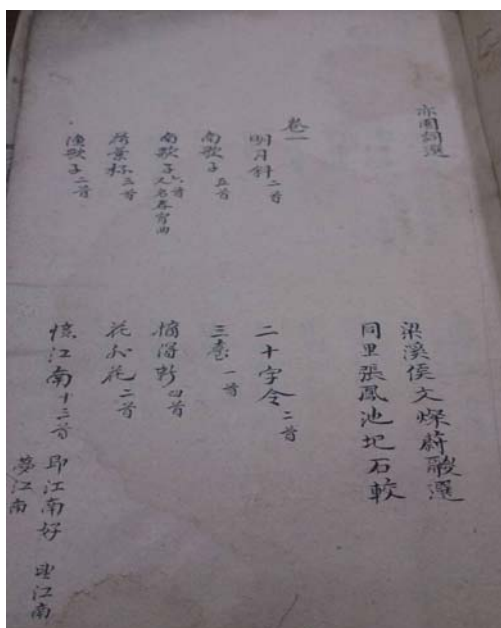 亦園詞選
梁溪侯文燦蔚選
同里張鳳池圯石較
卷一
明月斜二首 二十字令二首
南歌子五首 三臺一首
南歌子六首又名春宵曲 摘得新四首
荷葉杯三首 花非花二首
漁歌子二首 憶江南十三首 即江南好 望江南
夢江南